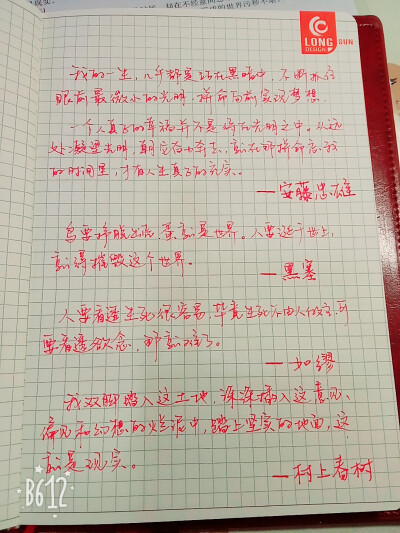 LONG
DESIGN
我的一生，几乎都是站在黑暗中，不断抓住
眼前最微小的光明，拼命向前实现梦想
一个人真正的幸福并不是待在光明之中。从远
处凝望光明，朝它奋力奔去，就在那拼命忘我
的时间里，才有人生真正的充实。
—安藤忠雄
鸟要挣脱出壳，蛋就是世界。人要诞于世上，
就得摧毁这个世界。
—黑塞
人要看透生死很容易，毕竟生死不由人做主，可
要看透欲念，那就难了。
—如缪
我双脚踏入这土地，深深插入这意见、
偏见和幻想的烂泥中，踏上坚实的地面，这
就是现实。
—村上春树
B612